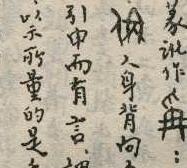 篆訛作
人身背向
引申而有言,
以示所量的是